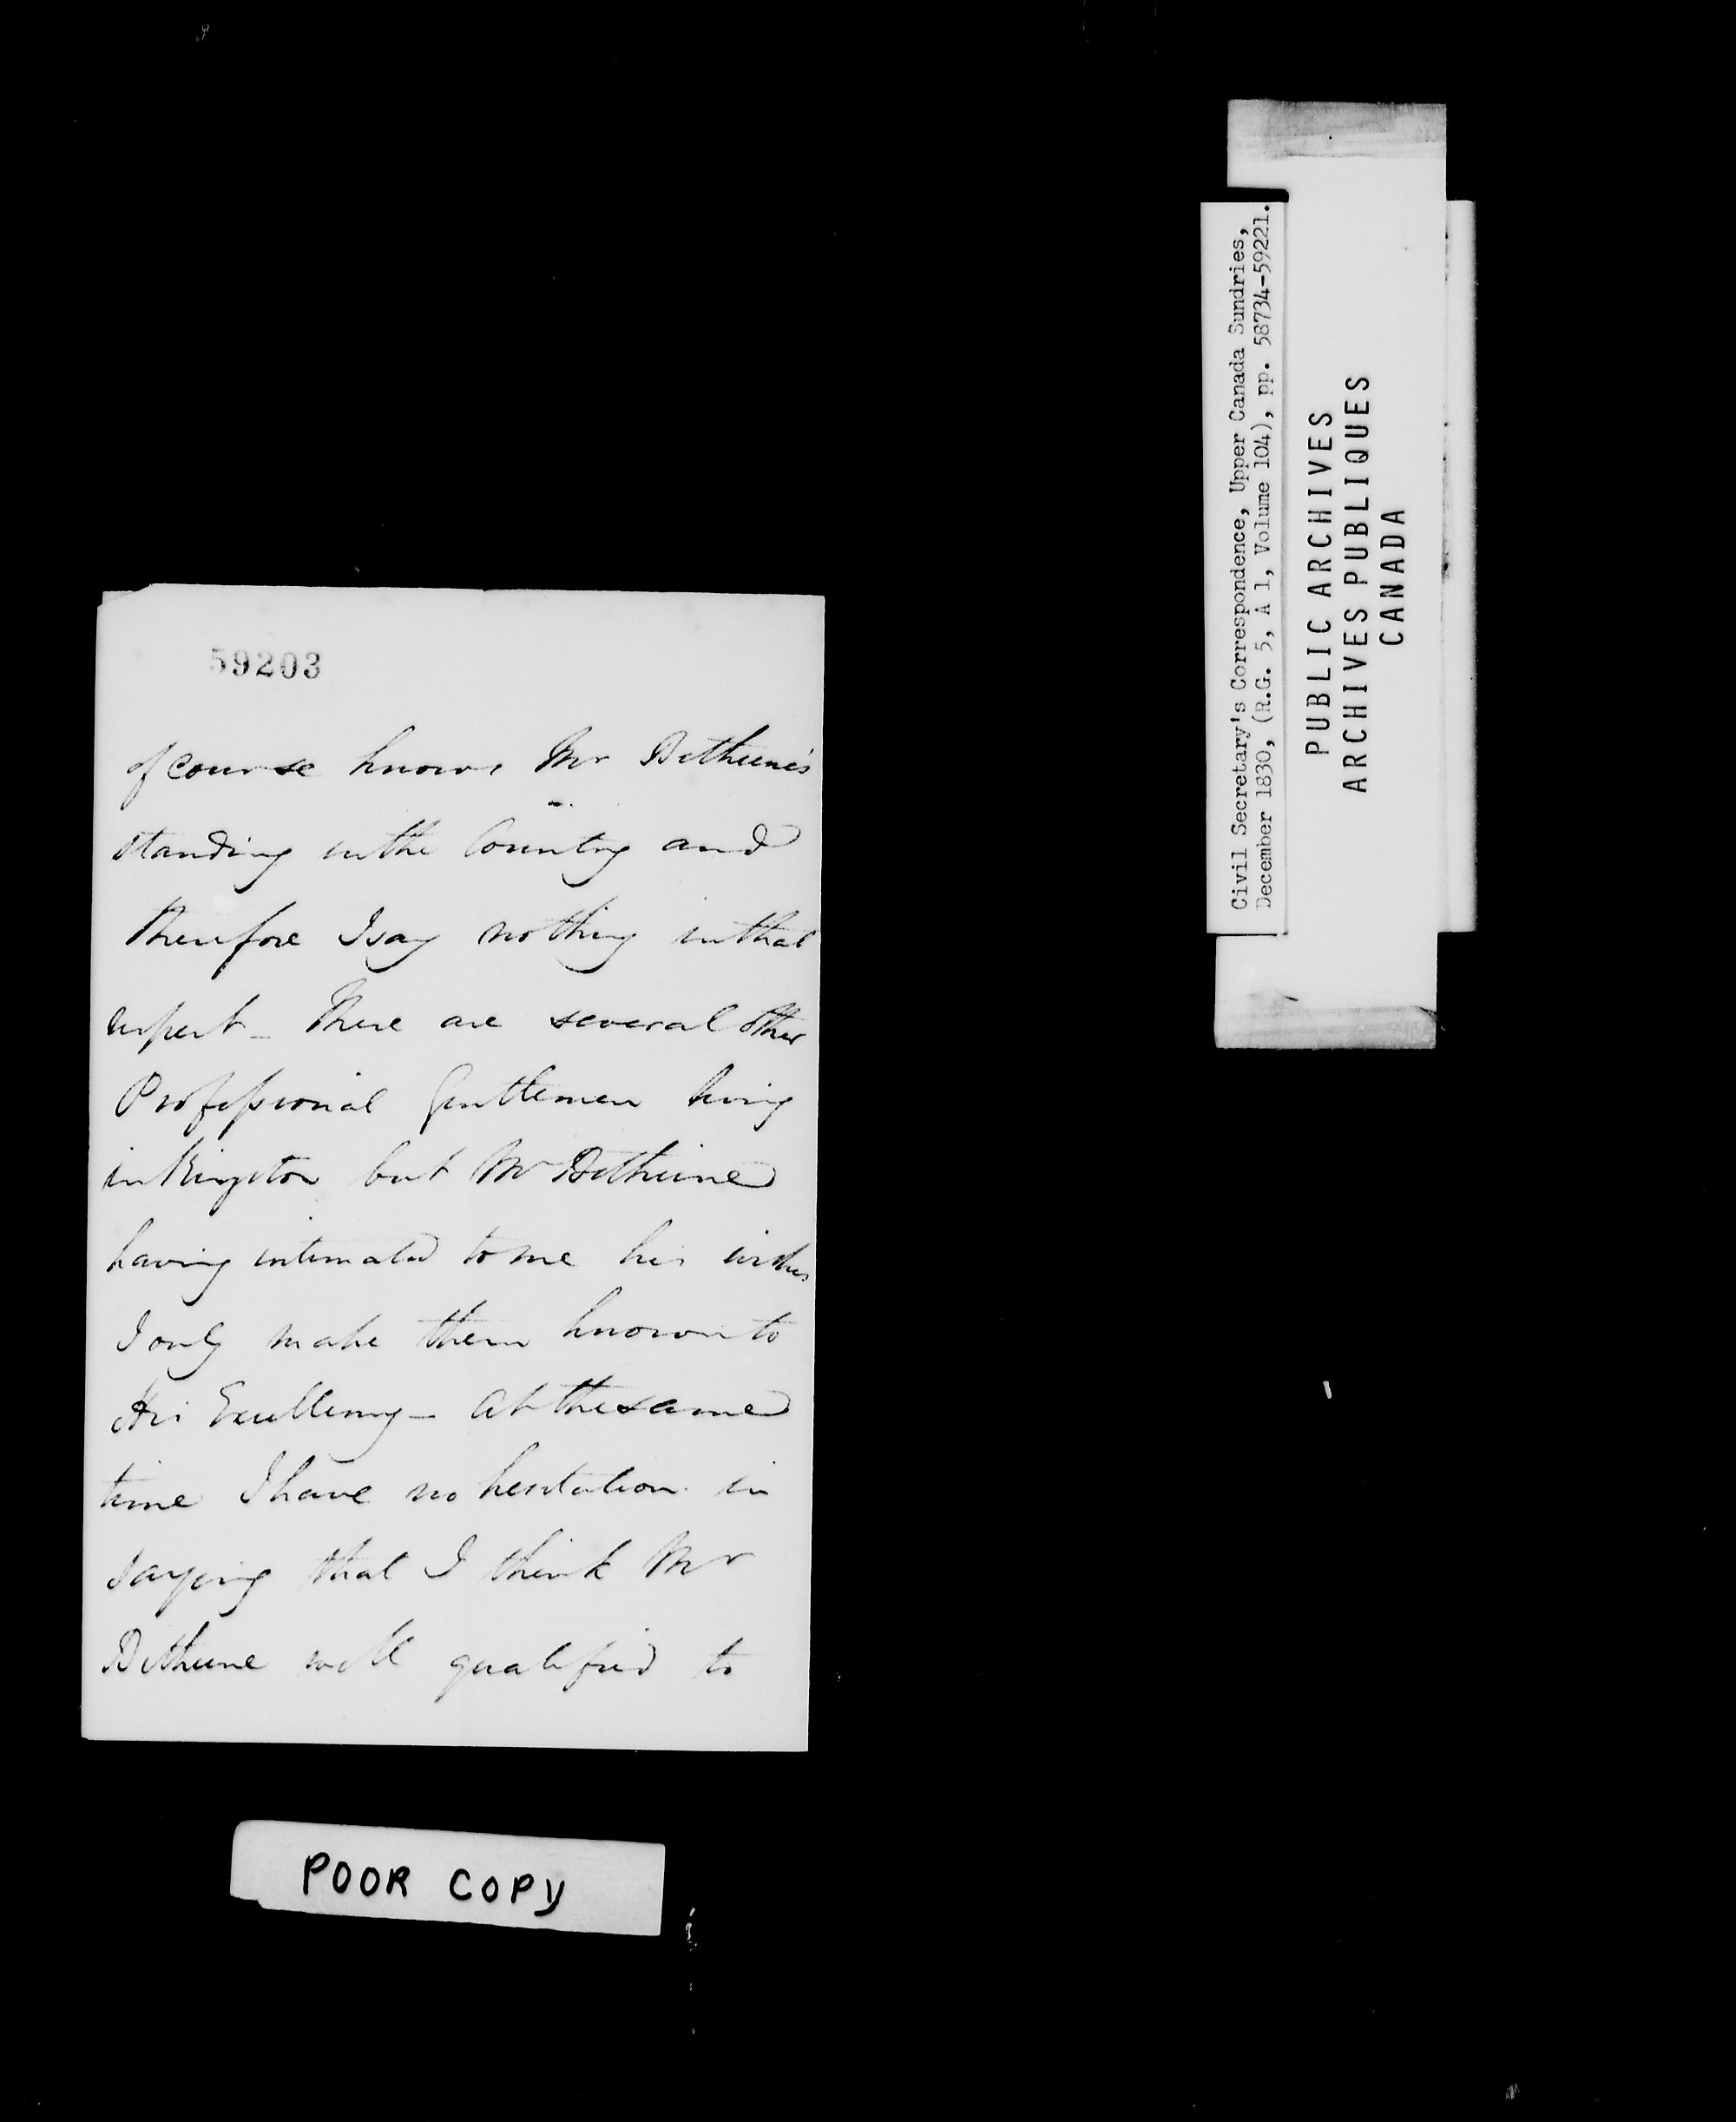 59203
of course knows Mr Bethune's
standing in the Country and
therefore I say nothing in that
respect - There are several other
Professional Gentlemen living
in Kingston but Mr Bethune
having intimated to me his wishes
I only make them known to
His Excellency - At the same
time I have no hesitation in
saying that I think Mr
Bethune well qualified to
POOR COPY
Civil Secretary's Correspondence, Upper Canada Sundries,
December 1830, (R.G. 5, A 1, Volume 104), pp. 58734-59221.
PUBLIC ARCHIVES
ARCHIVES PUBLIQUES
CANADA